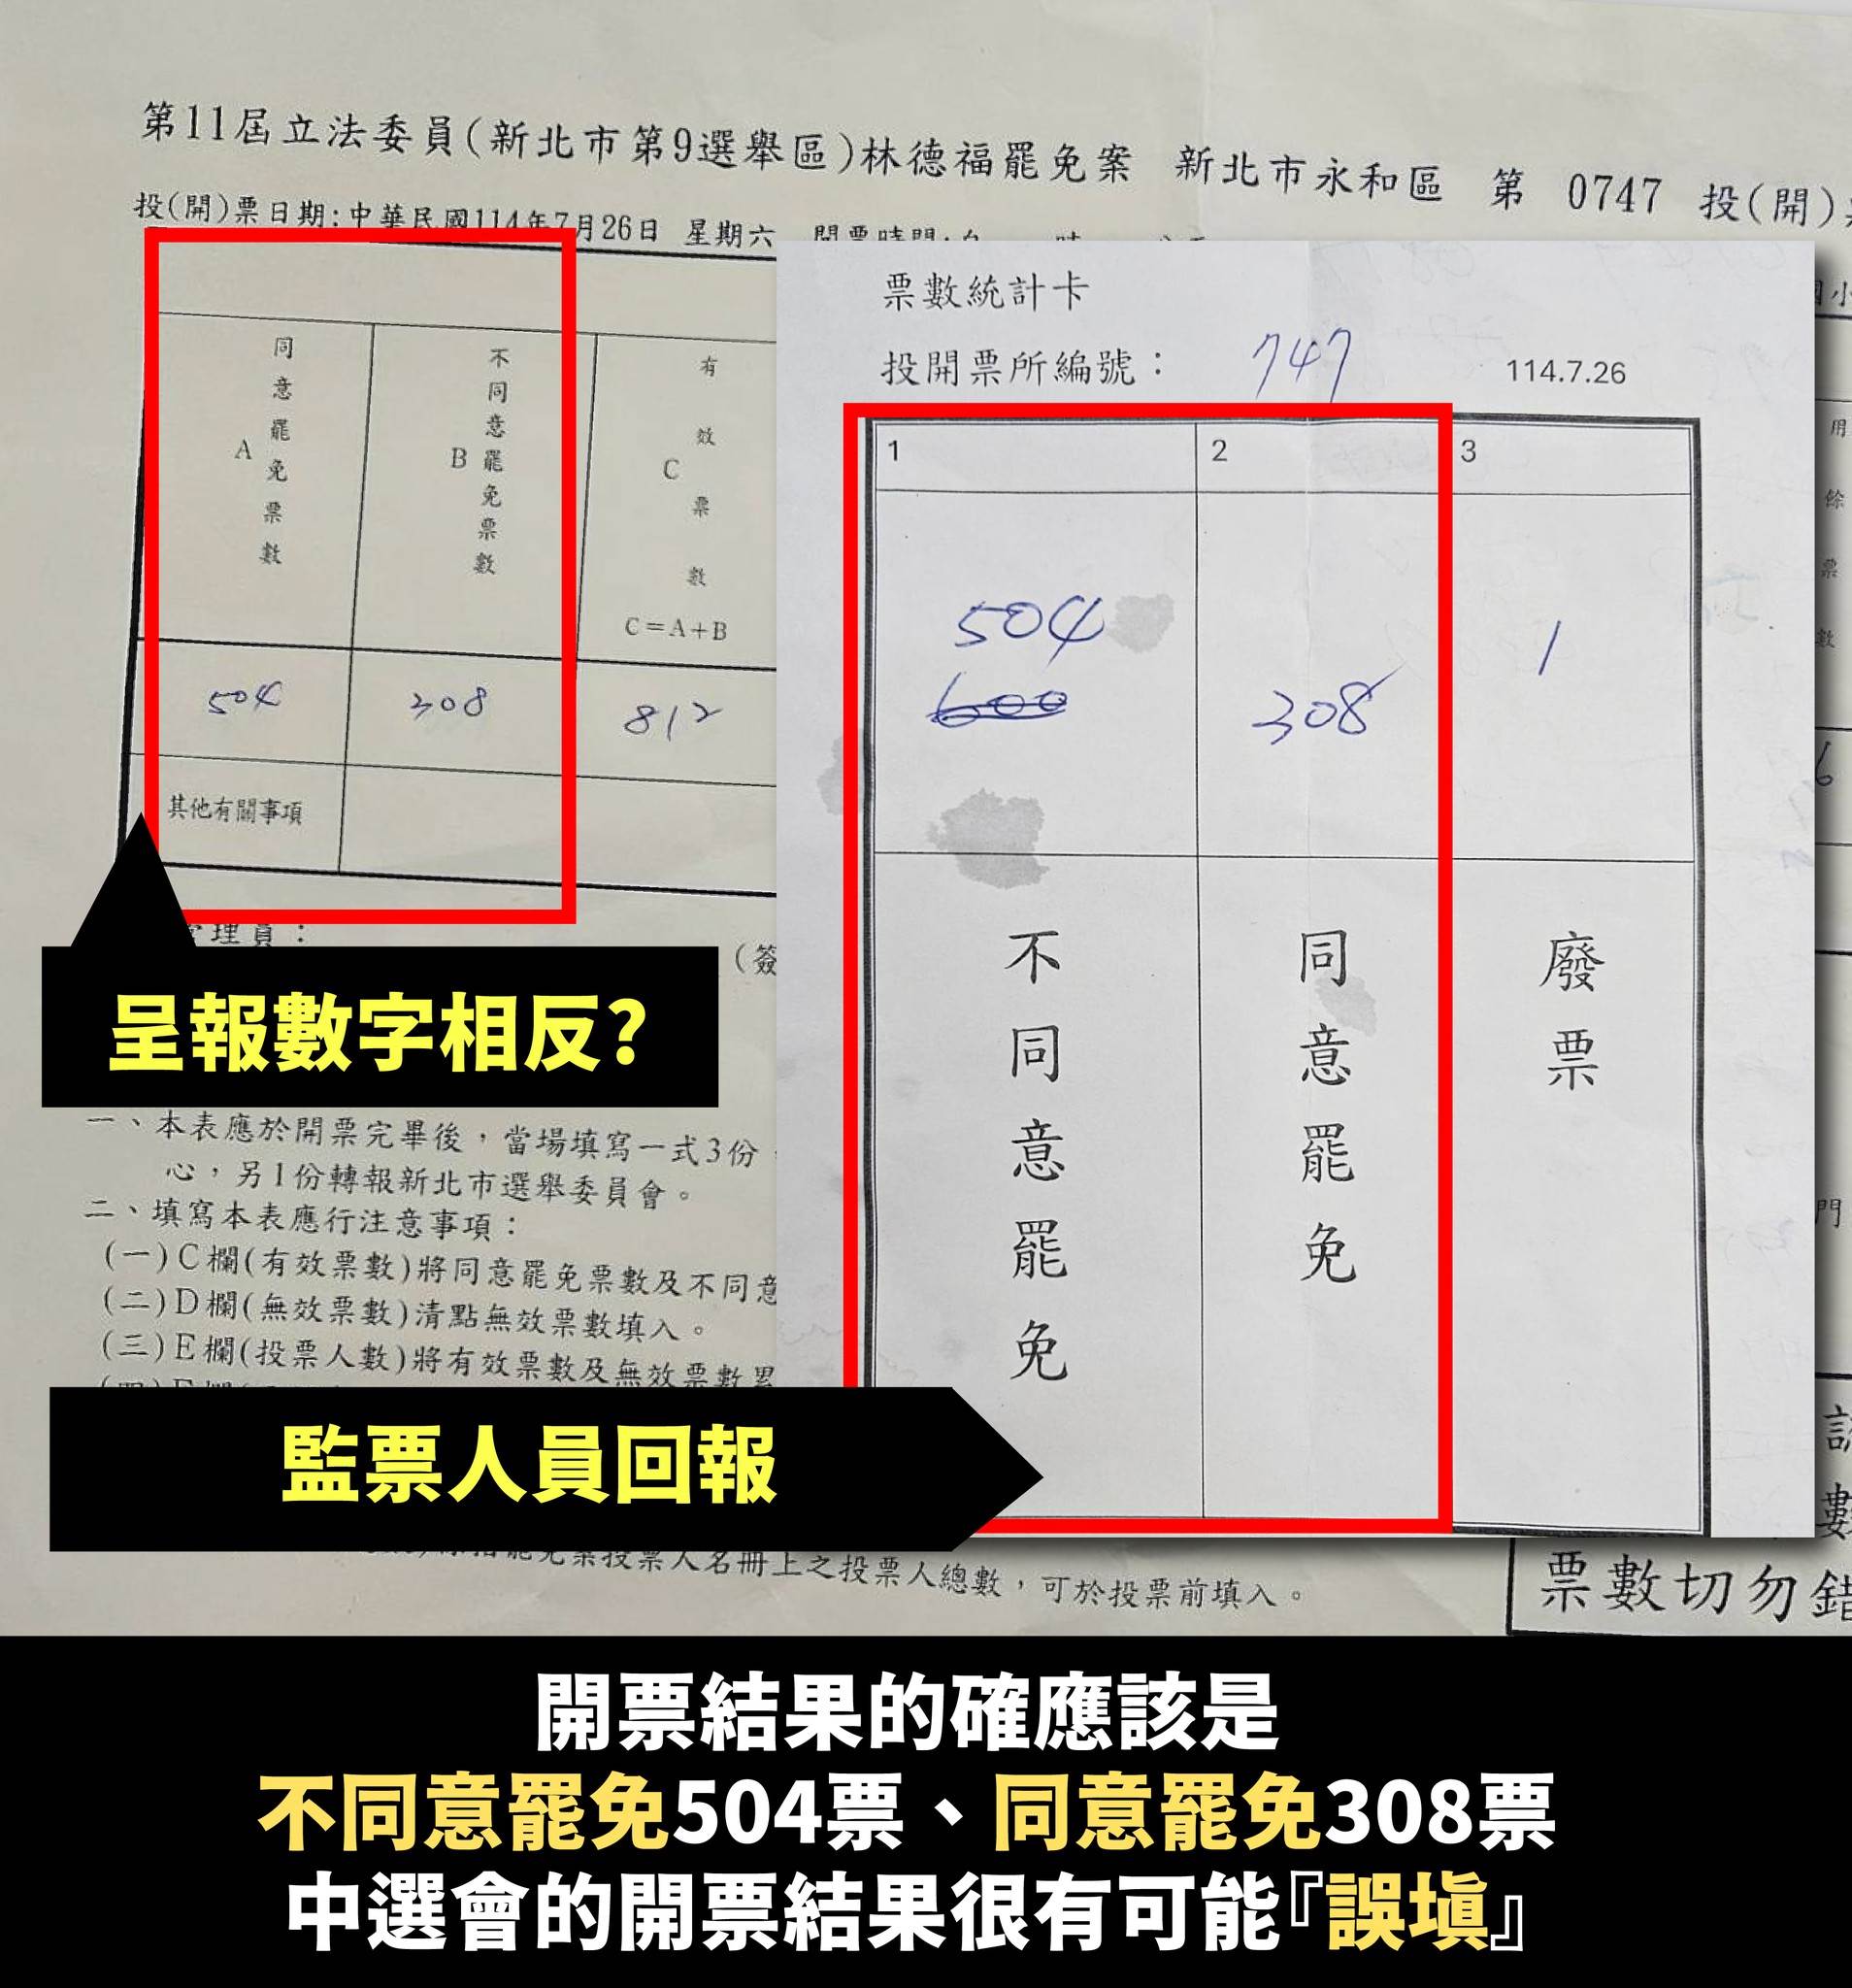 第11屆立法委員(新北市第9選舉區)林德福罷免案 新北市永和區 第 0747 投(開)
投(開)票日期:中華民國114年7月26日 星期六 開票時間:自
同意罷免票數
A
不同意罷免票數
B
有效票數
C
C=A+B
504
308
812
其他有關事項
管理員：
(簽
呈報數字相反?
一、本表應於開票完畢後，當場填寫一式3份
心，另1份轉報新北市選舉委員會。
二、填寫本表應行注意事項：
(一)C欄(有效票數)將同意罷免票數及不同意
(二)D欄(無效票數)清點無效票數填入。
(三)E欄(投票人數)將有效票數及無效票數累
票數統計卡
投開票所編號： 747 114.7.26
1 2 3
504
600
308
1
不同意罷免
同意罷免
廢票
用餘票數
6
門
監票人員回報
罷免案投票人名冊上之投票人總數，可於投票前填入。
數
票數切勿錯
開票結果的確應該是
不同意罷免504票、同意罷免308票
中選會的開票結果很有可能『誤填』